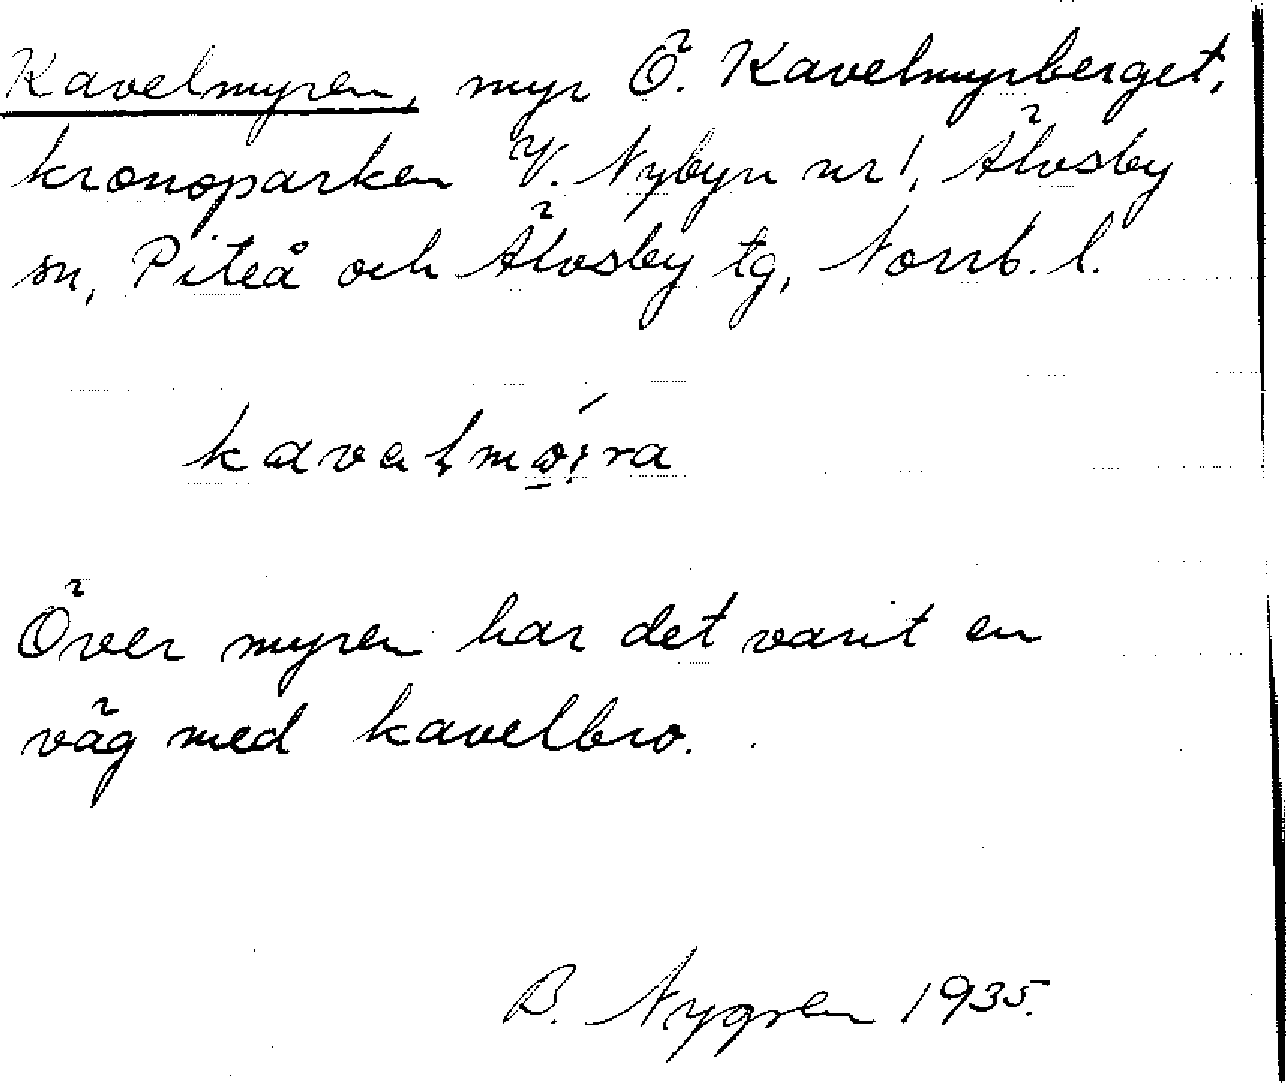 Kavelmyren, myr Ö. Kavelmyrberget,
kronoparken V. Nybyn nr 1, Älvsby
sn, Piteå och Älvsby tg, Norrb. l.
kavalmø̱i̯ra
Över myren har det varit en
väg med kavelbro.
B. Nygren 1935.